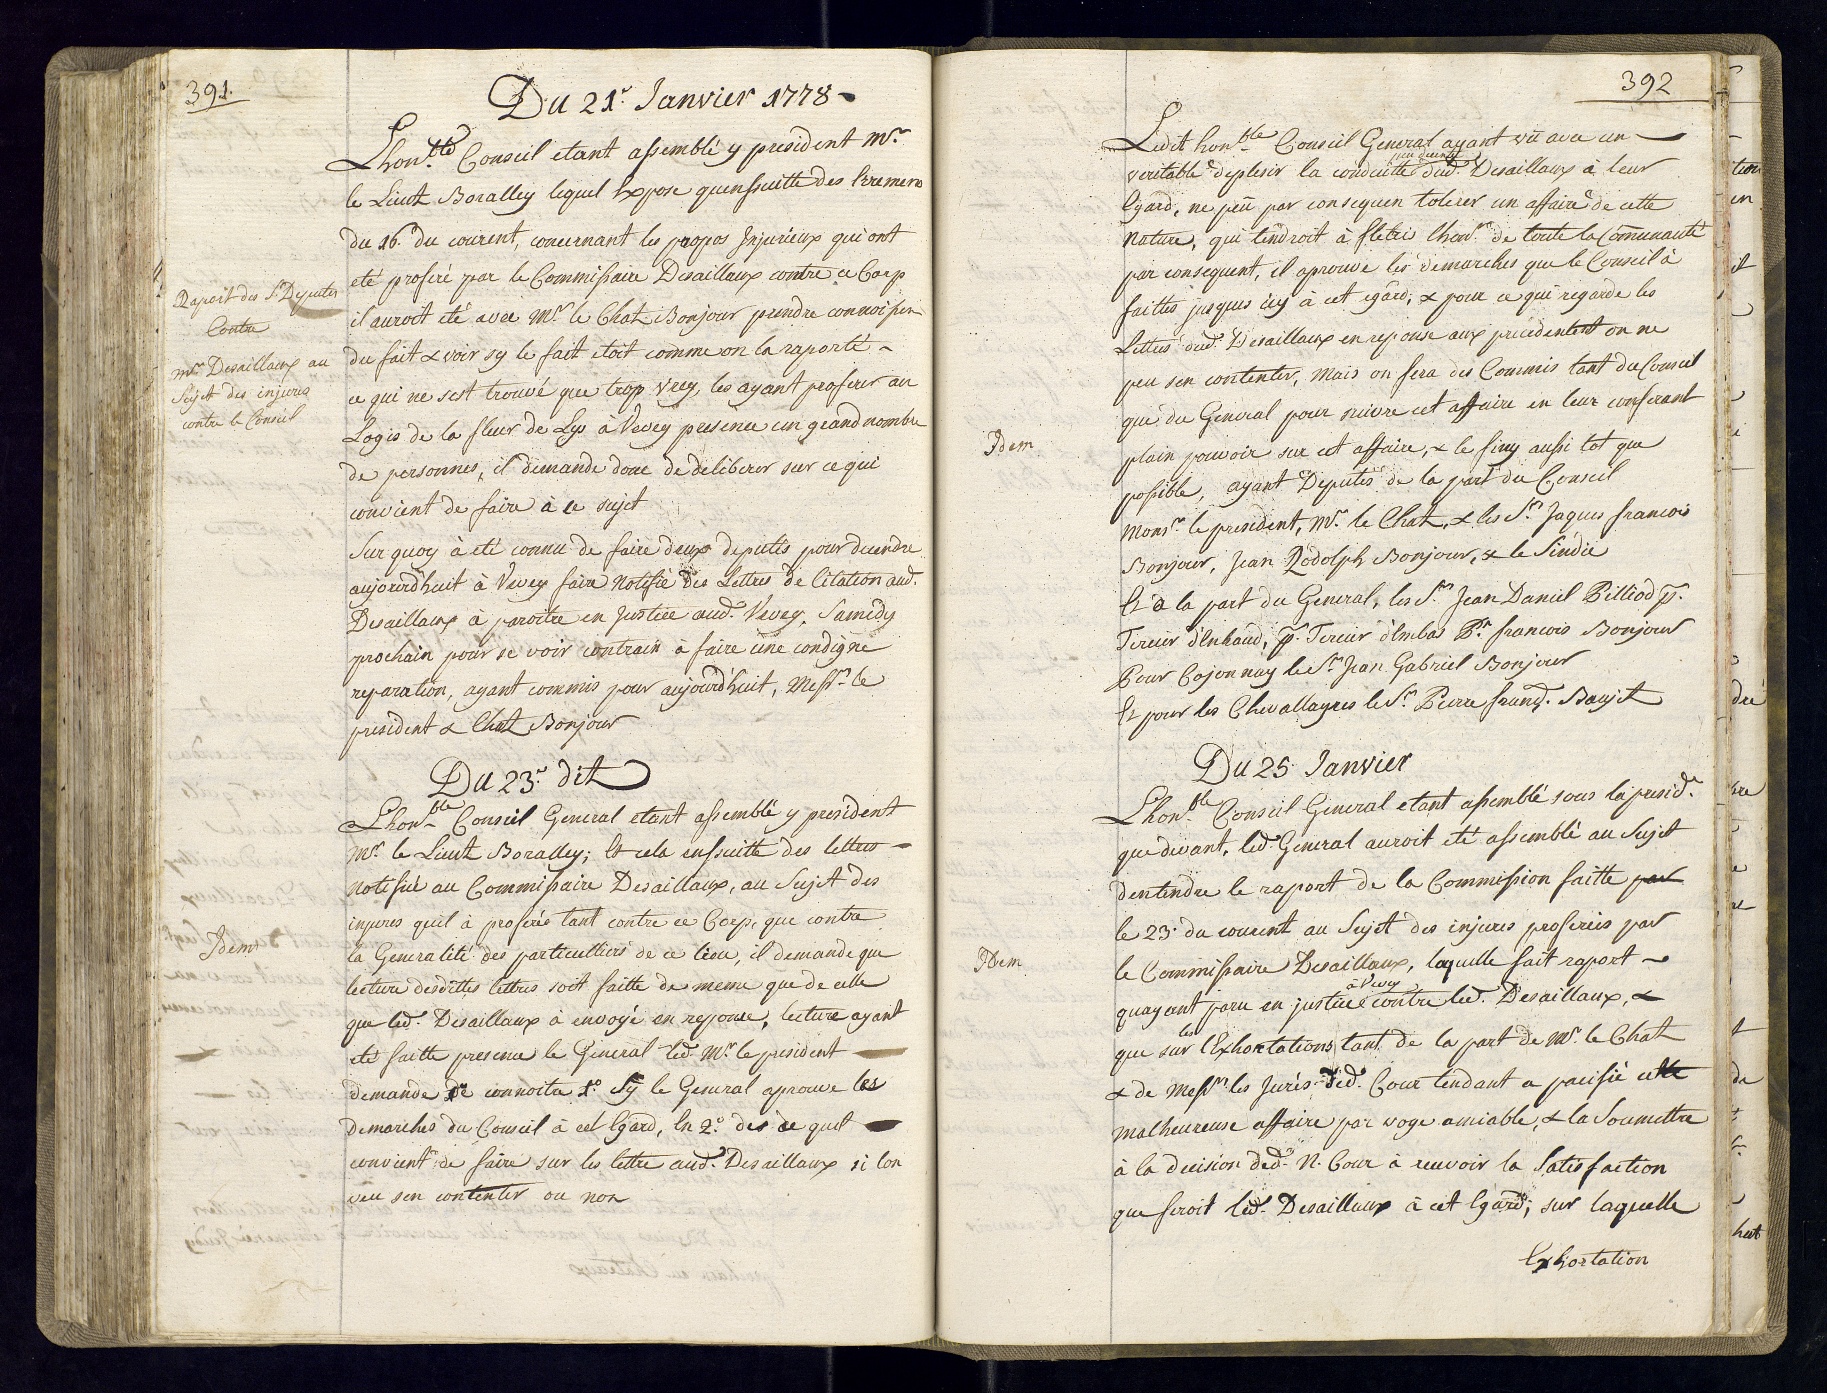 391.
Du 21.e Janvier 1778
Lhon.ble Conseil etant assemblé y president Mr.
le Lieut Boralley lequel Expose quensuitte des
du 16.e du courent, concernant les propos Injurieux qui ont
eté proferé par le Commissaire Desaillaux contre ce Corp
il auroit eté avec Mr. le Chat. Bonjour prendre connoissen
du fait & voir sy le fait etoit comme on la raporté
ce qui ne sest trouvé que trop vrey, les ayant proferer au
Logis de la fleur de Lys à Vevey presence un grand nombre
de personnes, il demande donc de deliberer sur ce qui
convient de faire à ce sujet
Sur quoy à eté connu de faire deux deputés pour decendre
aujourdhuit à Vevey faire Notifié des Lettres de Citation aud.
Desaillaux à paroitre en Justice aud. Vevey, Samedy
prochain pour se voir contrain à faire une condigne
reparation, ayant commis pour aujourdhuit, Messrs. le
president & Chat Bonjour
Raport des Srs Deputés
Contre
Mr Desaillaux au
Sujet des injures
contre le Conseil
Du 23.e dit
Lhon.ble Conseil General etant assemblé y president
Mr. le Lieut Boralley; Et cela ensuitte des lettres
notifié au Commissaire Desaillaux, au Sujet des
injures quil à proferés tant contre ce Corp, que contre
la Generalité des particulliers de ce lieu, il demande que
lecture desdittes lettres soit faitte de meme que de celle
que led. Desaillaux à envoyé en reponse, lecture ayant
eté faitte presence le General led. Mr. le president
demande de connoitre 1.o Sy le General aprouve les
Demarches du Conseil à cet Egard, En 2.o des ce quil
convient de faire sur les lettre aud. Desaillaux si lon
veu sen contenter ou non
Idem
392
Ledit hon.ble Conseil General ayant vü avec un
veritable deplesir la conduitte peu decente dud. Desaillaux à leur
Egard, ne peü par consequen tolerer un affaire de cette
Nature, qui tendroit à fletri lhon.r de toute la Communauté
par consequent, il aprouve les demarches que le Conseil à
faittes jusques icy à cet egard, & pour ce qui regarde les
Lettres dud. Desaillaux en reponse aux precedentes on ne
peu sen contenter, Mais on fera des Commis tant du Conseil
que du General pour suivre cet affaire en leur conferant
plain pouvoir sur cet affaire, & le finy aussi tot que
possible, ayant Deputés de la part du Conseil
Monsr. le president, Mr. le Chat, & les Srs Jaques francois
Bonjour, Jean Rodolph Bonjour, & le Sindic
Et à la part du General, les Srs Jean Daniel Pilliod p.
Tercier d'Enhaud, p. Tercier d'Embas Pr. francois Bonjour
Pour Cojonnay le Sr. Jean Gabriel Bonjour
Et pour les Chevallayres le Sr. Pierre franç. Baujet
Idem
Du 25 Janvier
Lhon.ble Conseil General etant assemblé sous la presid.ce
que devant, led. General auroit eté assemblé au Sujet
dentendre le raport de la Commission faitte par
le 23. du courent au Sujet des injures proferées par
le Commissaire Desaillaux, laquelle fait raport
quayant paru en justice à Vevey contre led. Desaillaux, &
que sur les Exhortations tant de la part de Mr. le Chat
& de Messrs les Jurés dud. Cour tendant a pacifié cette
malheureuse affaire par voye amiable, & la Soumettre
à la decision ded. N. Cour à recevoir la Satisfaction
que feroit led. Desaillaux à cet Egard, sur laquelle
Exhortation
Idem